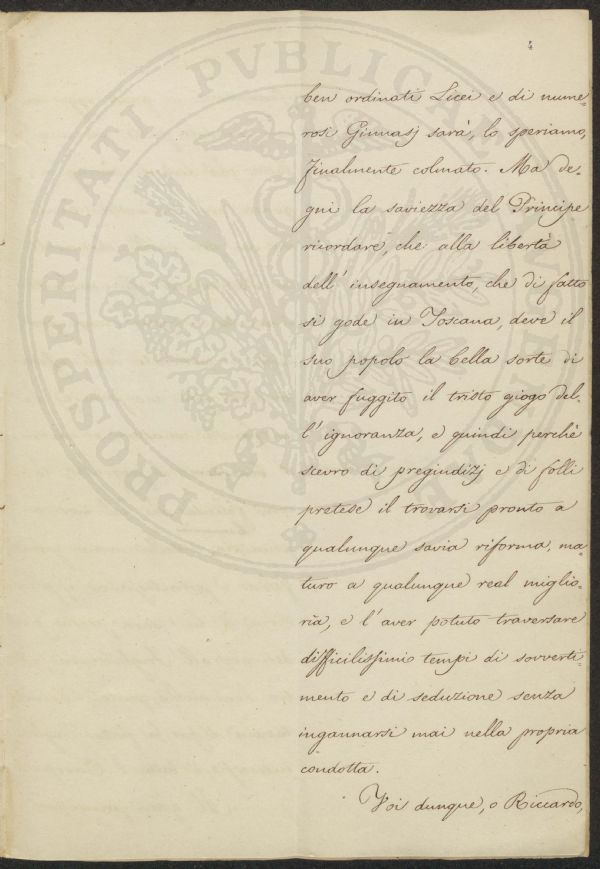 4
ben ordinati Licei e di nume=
rosi Ginnasj sarà, lo speriamo,
finalmente colmato. Ma de=
gni la saviezza del Principe
ricordare, che alla libertà
dell' insegnamento, che di fatto
si gode in Toscana, deve il
suo popolo la bella sorte di
aver fuggito il tristo giogo del=
l' ignoranza, e quindi perchè
scevro di pregiudizj e di folli
pretese il trovarsi pronto a
qualunque savia riforma, ma=
turo a qualunque real miglio=
ria, e l' aver potuto traversare
difficilissimi tempi di sovverti=
mento e di seduzione senza
ingannarsi mai nella propria
condotta.
Voi dunque, o Riccardo,
PROSPERITATI PVBLICAE